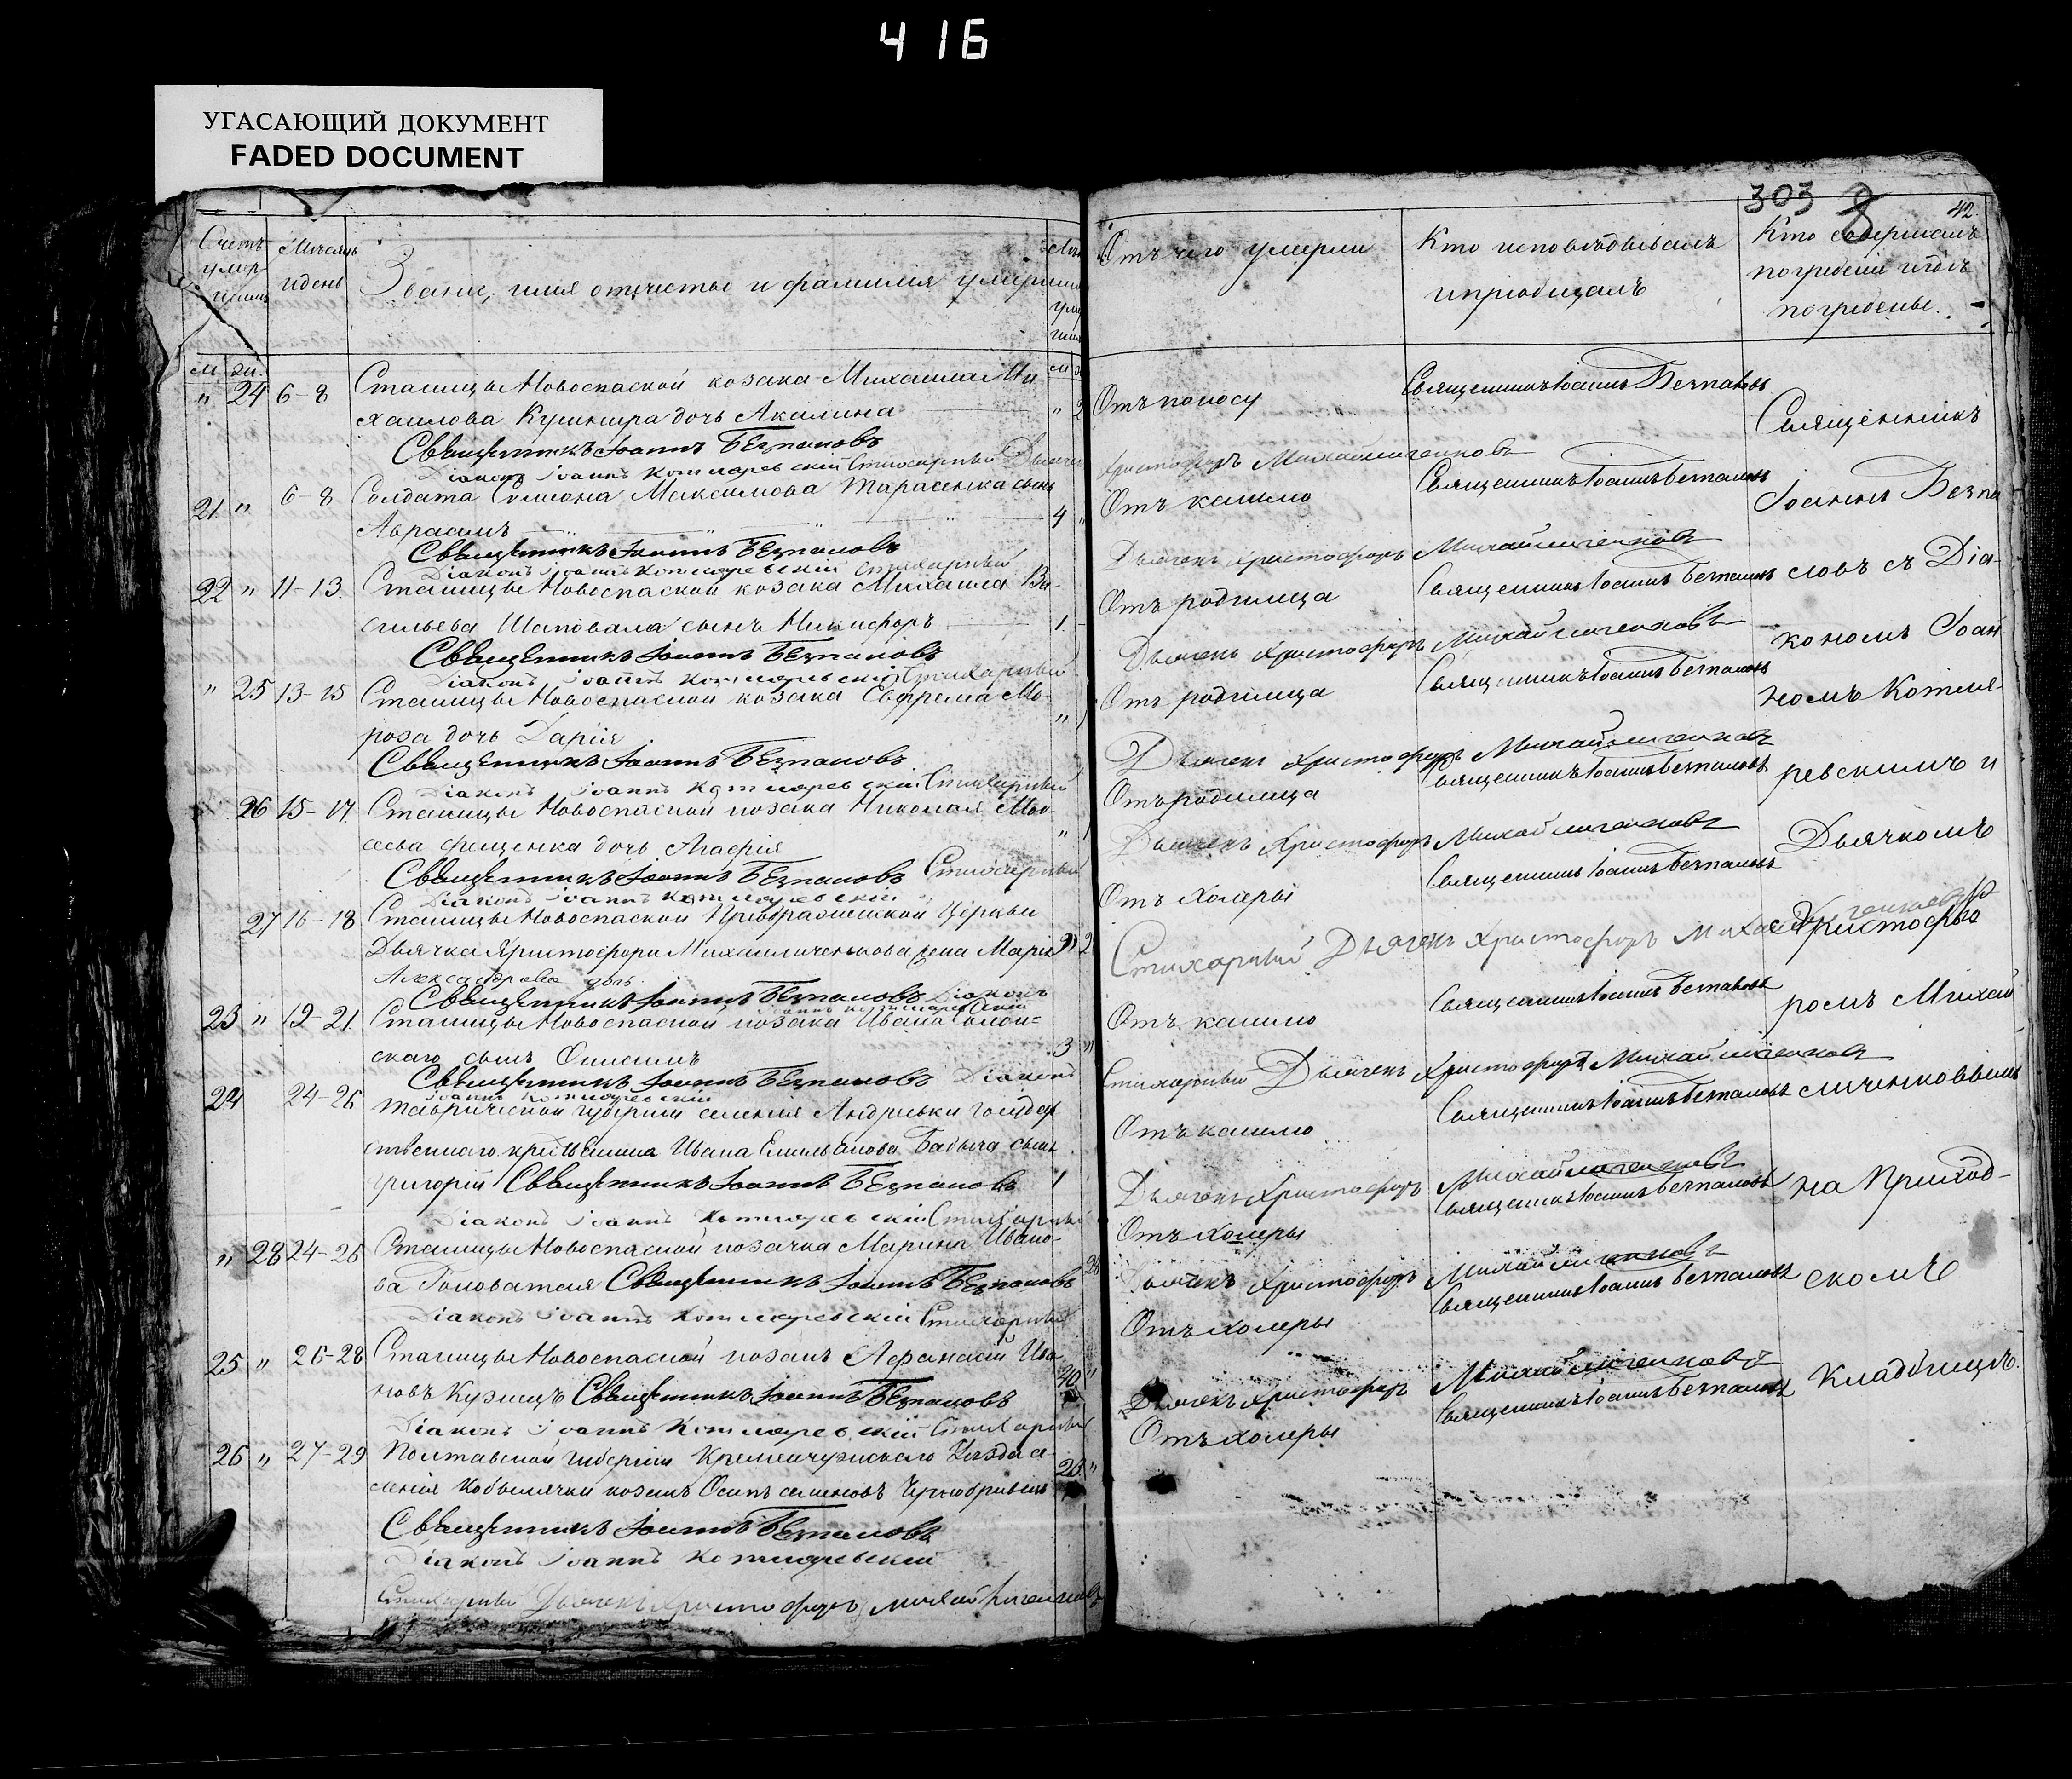 416
УГАСАЮЩИЙ ДОКУМЕНТ
FADED DOCUMENT
Счетъ умер
Мѣсяцъ и день
Званіе, имя отчество и фамилія умерши
м. ж.
" 24 6-8 Станицы Новоспаской козака Михаила Ми
хаилова Кушнира дочь Акилина " 2
Священникъ Іоаннъ Безпаловъ
Діаконъ Іоаннъ Котляревскій Стихарный Дьячекъ
21 " 6-8 Солдата Максимова Тарасенка сынъ
Авраамъ 4 "
Священникъ Іоаннъ Безпаловъ
Діаконъ Іоаннъ Котляревскій Стихарный
22 " 11-13 Станицы Новоспаской козака Михаила Ва-
сильева Шаповала сынъ Никифоръ 1
Священникъ Іоаннъ Безпаловъ
Діаконъ Іоаннъ Котляревскій Стихарный
" 25 13-15 Станицы Новоспаской козака Ефрема Мо-
роза дочь Дарія " 1
Священникъ Іоаннъ Безпаловъ
Діаконъ Іоаннъ Котляревскій Стихарный
26 15-17 Станицы Новоспаской козака Николая Мои-
сеева Фещенка дочь Агафія " 1
Священникъ Іоаннъ Безпаловъ Стихарный
Діаконъ Іоаннъ Котляревскій
27 16-18 Станицы Новоспаской Церквы
Дьячка Христофора Михаиличенькова жена Марія 2
Александрова дочь
Священникъ Іоаннъ Безпаловъ Діаконъ
Іоаннъ Котляревскій
23 " 19-21 Станицы Новоспаской козака Ивана
скаго сынъ 3 "
Священникъ Іоаннъ Безпаловъ Діаконъ
Іоаннъ Котляревскій
24 24-26 Таврической губерніи селенія Андреевки государ
ственнаго крестьянина Ивана Емельянова Бабича сынъ
Григорій Священникъ Іоаннъ Безпаловъ 1
Діаконъ Іоаннъ Котляревскій Стихарный
" 28 24-26 Станицы Новоспаской козачка Марина Ивано-
ва Головатая Священникъ Іоаннъ Безпаловъ
Діаконъ Іоаннъ Котляревскій Стихарный
25 " 26-28 Станицы Новоспаской козакъ Афанасій Ива-
новъ Кузмецъ Священникъ Іоаннъ Безпаловъ 40 "
Діаконъ Іоаннъ Котляревскій Стихарный
26 " 27-29 Полтавской губерніи Кременчужскаго Уѣзда се-
ленія Кобылячки козакъ Осипъ Семеновъ Чернобривецъ 26 "
Священникъ Іоаннъ Безпаловъ
Діаконъ Іоаннъ Котляревскій
Стихарный Дьячекъ Христофоръ Михайличенковъ
303 42
Отъ чего умерли
Кто исповѣдывалъ
и пріобщалъ
Кто совершалъ
погребеніе и гдѣ
погребены.
Отъ поносу Священникъ Іоаннъ Безпаловъ
Христофоръ Михайличенковъ
Отъ кашлю Священникъ Іоаннъ Безпаловъ
Дьячекъ Христофоръ Михайличенковъ
Отъ родимца Священникъ Іоаннъ Безпаловъ
Дьячекъ Христофоръ Михайличенковъ
Отъ родимца Священникъ Іоаннъ Безпаловъ
Дьячекъ Христофоръ Михайличенковъ
Отъ родимца Священникъ Іоаннъ Безпаловъ
Дьячекъ Христофоръ Михайличенковъ
Отъ Холеры Священникъ Іоаннъ Безпаловъ
Стихарный Дьячекъ Христофоръ Михайличенковъ
Отъ кашлю Священникъ Іоаннъ Безпаловъ
Стихарный Дьячекъ Христофоръ Михайличенковъ
Отъ кашлю Священникъ Іоаннъ Безпаловъ
Дьячекъ Христофоръ Михайличенковъ
Отъ холеры Священникъ Іоаннъ Безпаловъ
Дьячекъ Христофоръ Михайличенковъ
Отъ холеры Священникъ Іоаннъ Безпаловъ
Дьячекъ Христофоръ Михайличенковъ
Отъ холеры Священникъ Іоаннъ Безпаловъ
Священникъ
Іоаннъ Безпа
ловъ съ Діа-
кономъ Іоан
номъ Котля-
ревскимъ и
Дьячкомъ
Христофо
ромъ Михай
личенковымъ
на Приход-
скомъ
Кладбищѣ.